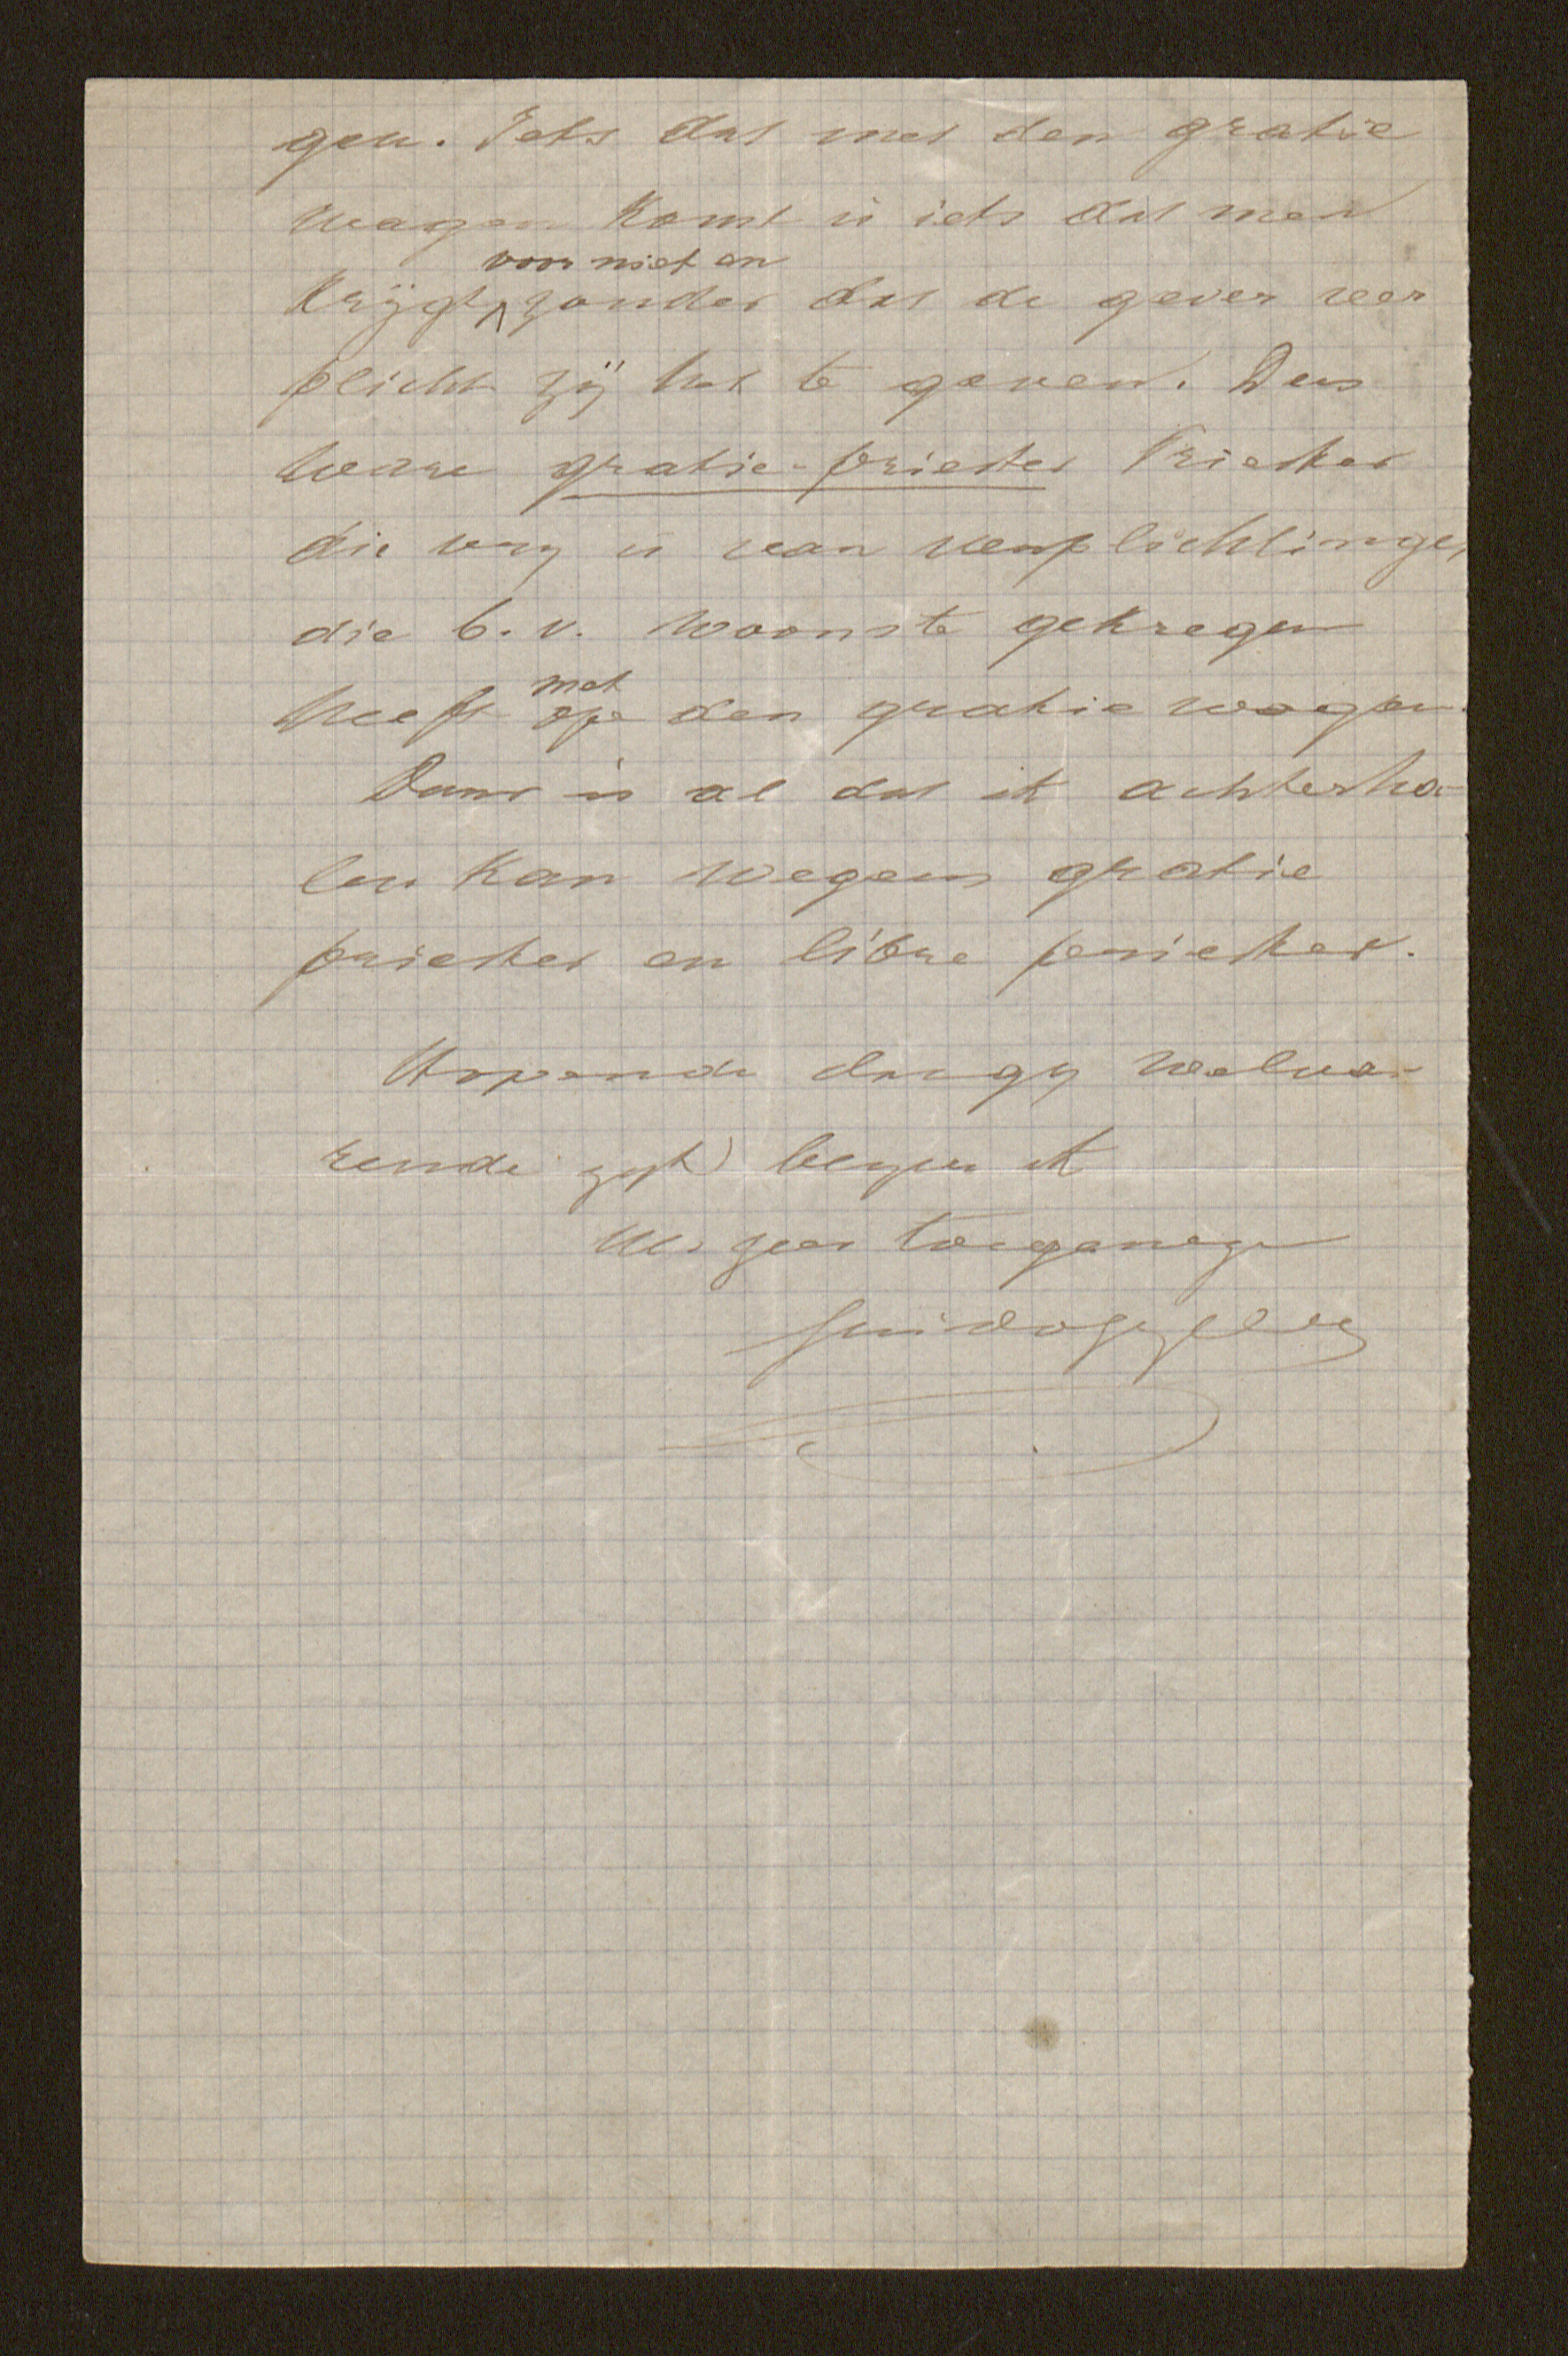 gen. Iets dat met den gratie
wagen komt is iets dat men
voor niet en
krijgt ^ zonder dat de gever ver
plicht zij het te geven. Dus
ware gratie-priester Priester
die vry is van verplichtingen
die b.v. woonste gekregen
met
heeft op den gratie wagen.
Daar is al dat ik achterha-
len kan wegens gratie
priester en libre priester.
Hopende dat gy welva-
rende zyt) blyve ik
Uw zeer toegenegen
Guido Gezelle